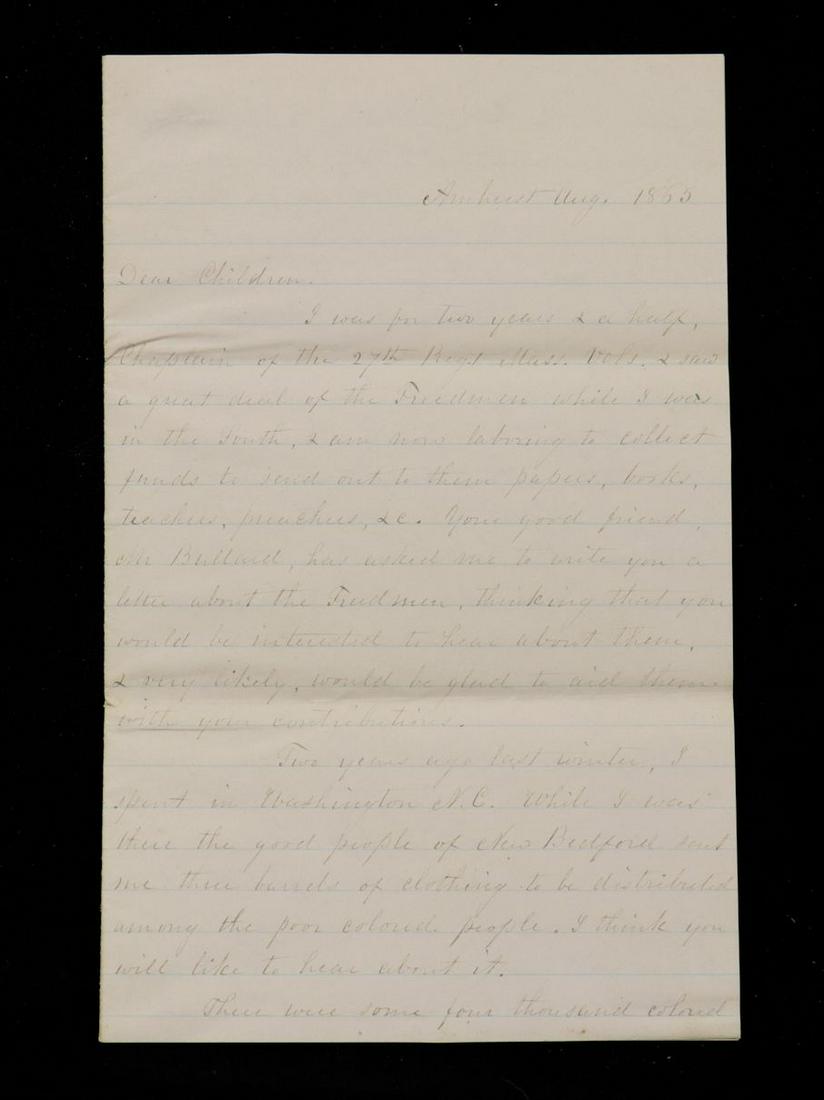 Amherst Aug. 1865
Dear Children.
I was for two years & a half,
Chaplain of the 27th Regt Mass. Vols. & saw
a great deal of the Freedmen while I was
in the South, & am now laboring to collect
funds to send out to them papers, books,
teachers, preachers, &c. Your good friend,
Mr Bullard, has asked me to write you a
letter about the Freedmen, thinking that you
would be interested to hear about them,
& very likely, would be glad to aid them
with your contributions.
Two years ago last winter, I
spent in Washington N.C. While I was
there the good people of New Bedford sent
me three barrels of clothing to be distributed
among the poor colored people. I think you
will like to hear about it.
There were some four thousand colored